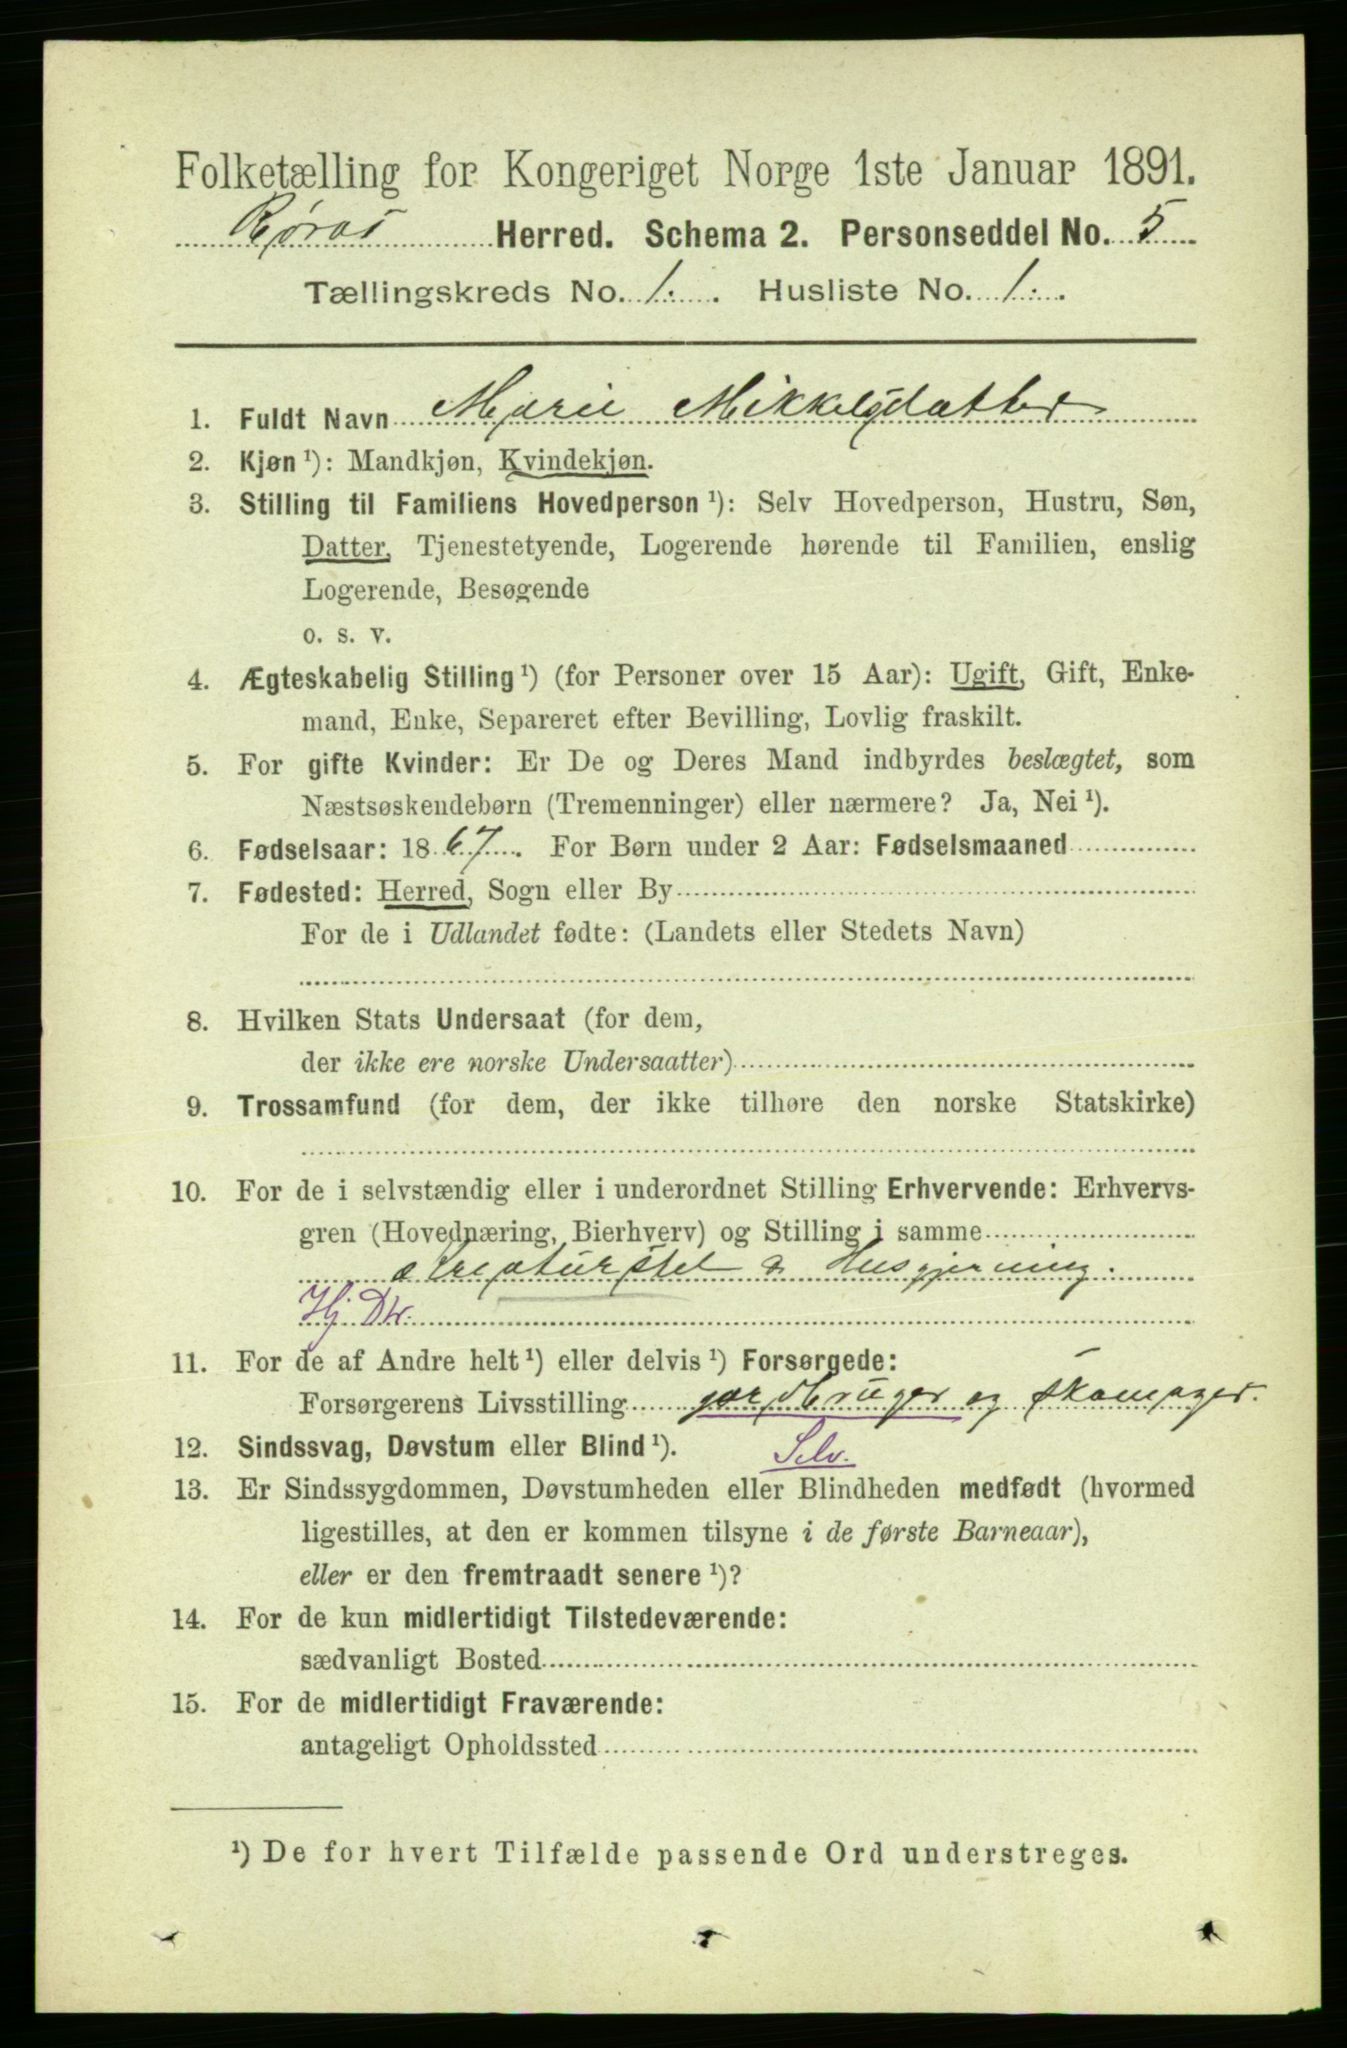 Folketælling for Kongeriget Norge 1ste Januar 1891.
Røros Herred. Schema 2. Personseddel No. 5
Tællingskreds No. 1. Husliste No. 1.
1. Fuldt Navn Marie Mikkelsdatter
2. Kjøn ¹): Mandkjøn, Kvindekjøn.
3. Stilling til Familiens Hovedperson ¹): Selv Hovedperson, Hustru, Søn,
Datter, Tjenestetyende, Logerende hørende til Familien, enslig
Logerende, Besøgende
o. s. v.
4. Ægteskabelig Stilling ¹) (for Personer over 15 Aar): Ugift, Gift, Enke-
mand, Enke, Separeret efter Bevilling, Lovlig fraskilt.
5. For gifte Kvinder: Er De og Deres Mand indbyrdes beslægtet, som
Næstsøskendebørn (Tremenninger) eller nærmere? Ja, Nei ¹).
6. Fødselsaar: 1867. For Børn under 2 Aar: Fødselsmaaned
7. Fødested: Herred, Sogn eller By
For de i Udlandet fødte: (Landets eller Stedets Navn)
8. Hvilken Stats Undersaat (for dem,
der ikke ere norske Undersaatter)
9. Trossamfund (for dem, der ikke tilhøre den norske Statskirke)
10. For de i selvstændig eller i underordnet Stilling Erhvervende: Erhvervs-
gren (Hovednæring, Bierhverv) og Stilling i samme
Kreaturstel & Husgjerning.
Hj Dtr.
11. For de af Andre helt ¹) eller delvis ¹) Forsørgede:
Forsørgerens Livsstilling gardbruger og skomager.
12. Sindssvag, Døvstum eller Blind ¹). Selv.
13. Er Sindssygdommen, Døvstumheden eller Blindheden medfødt (hvormed
ligestilles, at den er kommen tilsyne i de første Barneaar),
eller er den fremtraadt senere ¹)?
14. For de kun midlertidigt Tilstedeværende:
sædvanligt Bosted
15. For de midlertidigt Fraværende:
antageligt Opholdssted
¹) De for hvert Tilfælde passende Ord understreges.